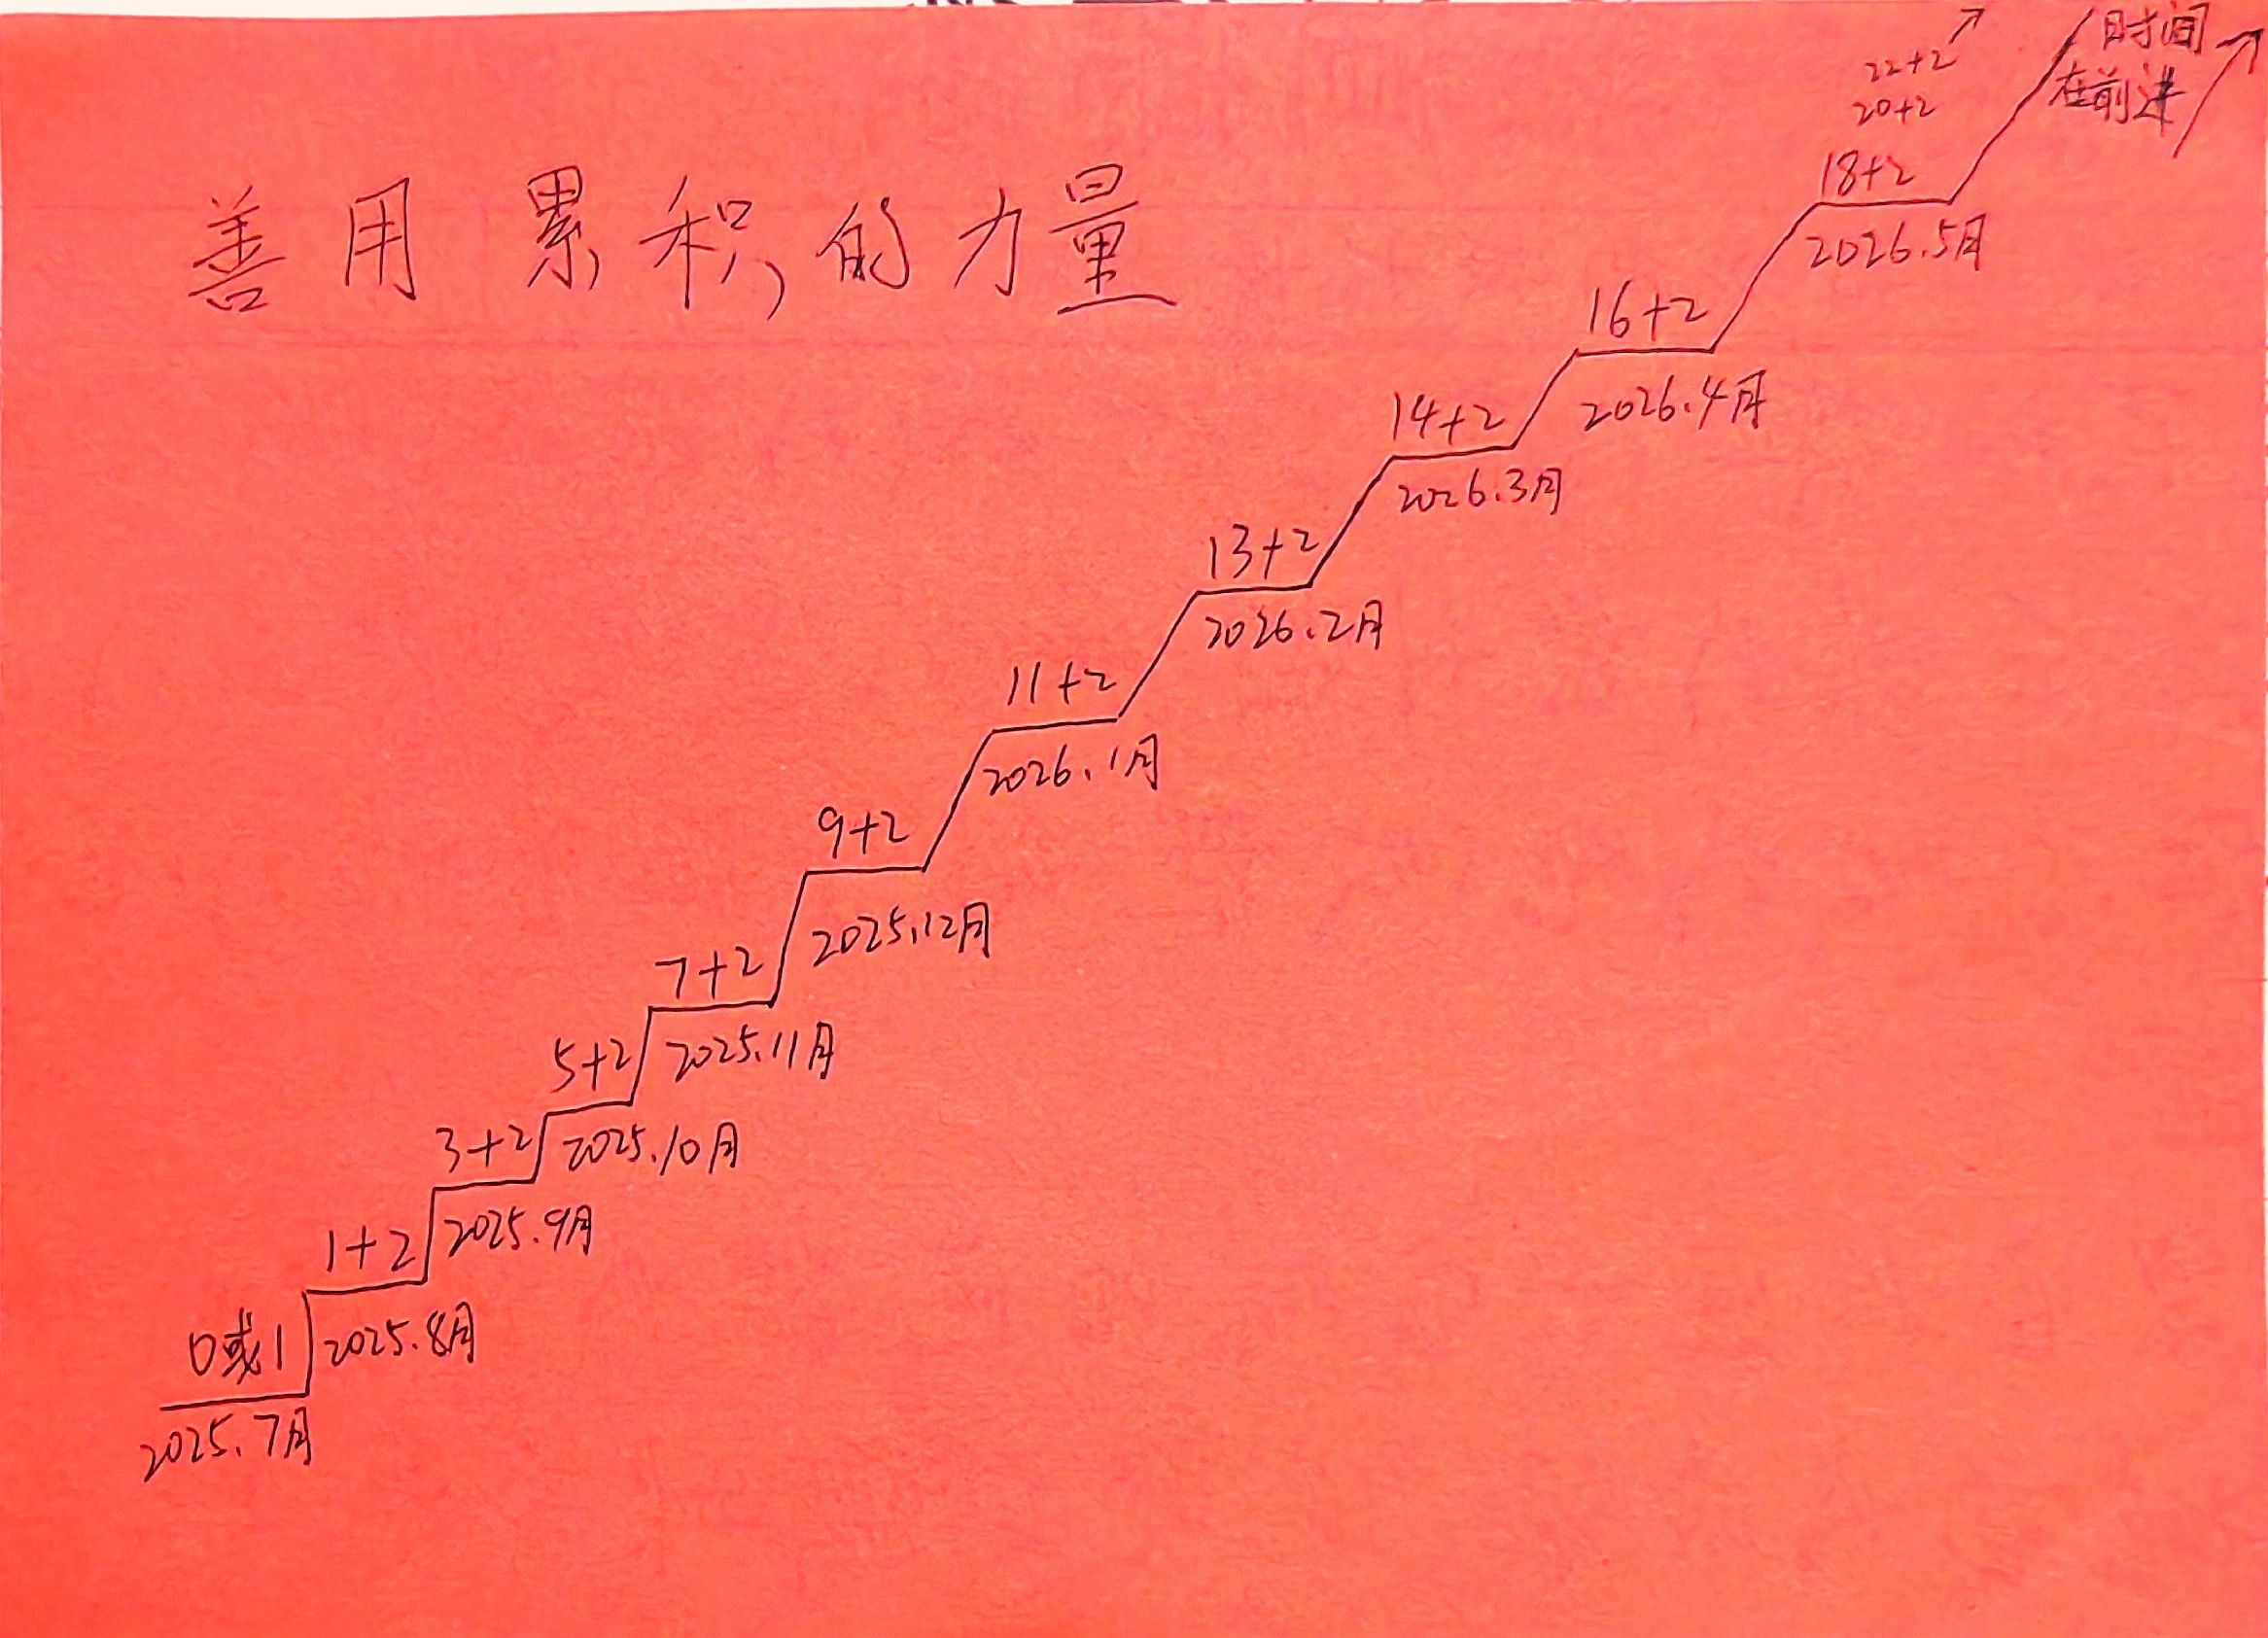 善用累积的力量
时间
在前进
22+2
20+2
18+2
2026.5月
16+2
2026.4月
14+2
2026.3月
13+2
2026.2月
11+2
2026.1月
9+2
2025.12月
7+2
2025.11月
5+2
2025.10月
3+2
2025.9月
1+2
2025.8月
0或1
2025.7月